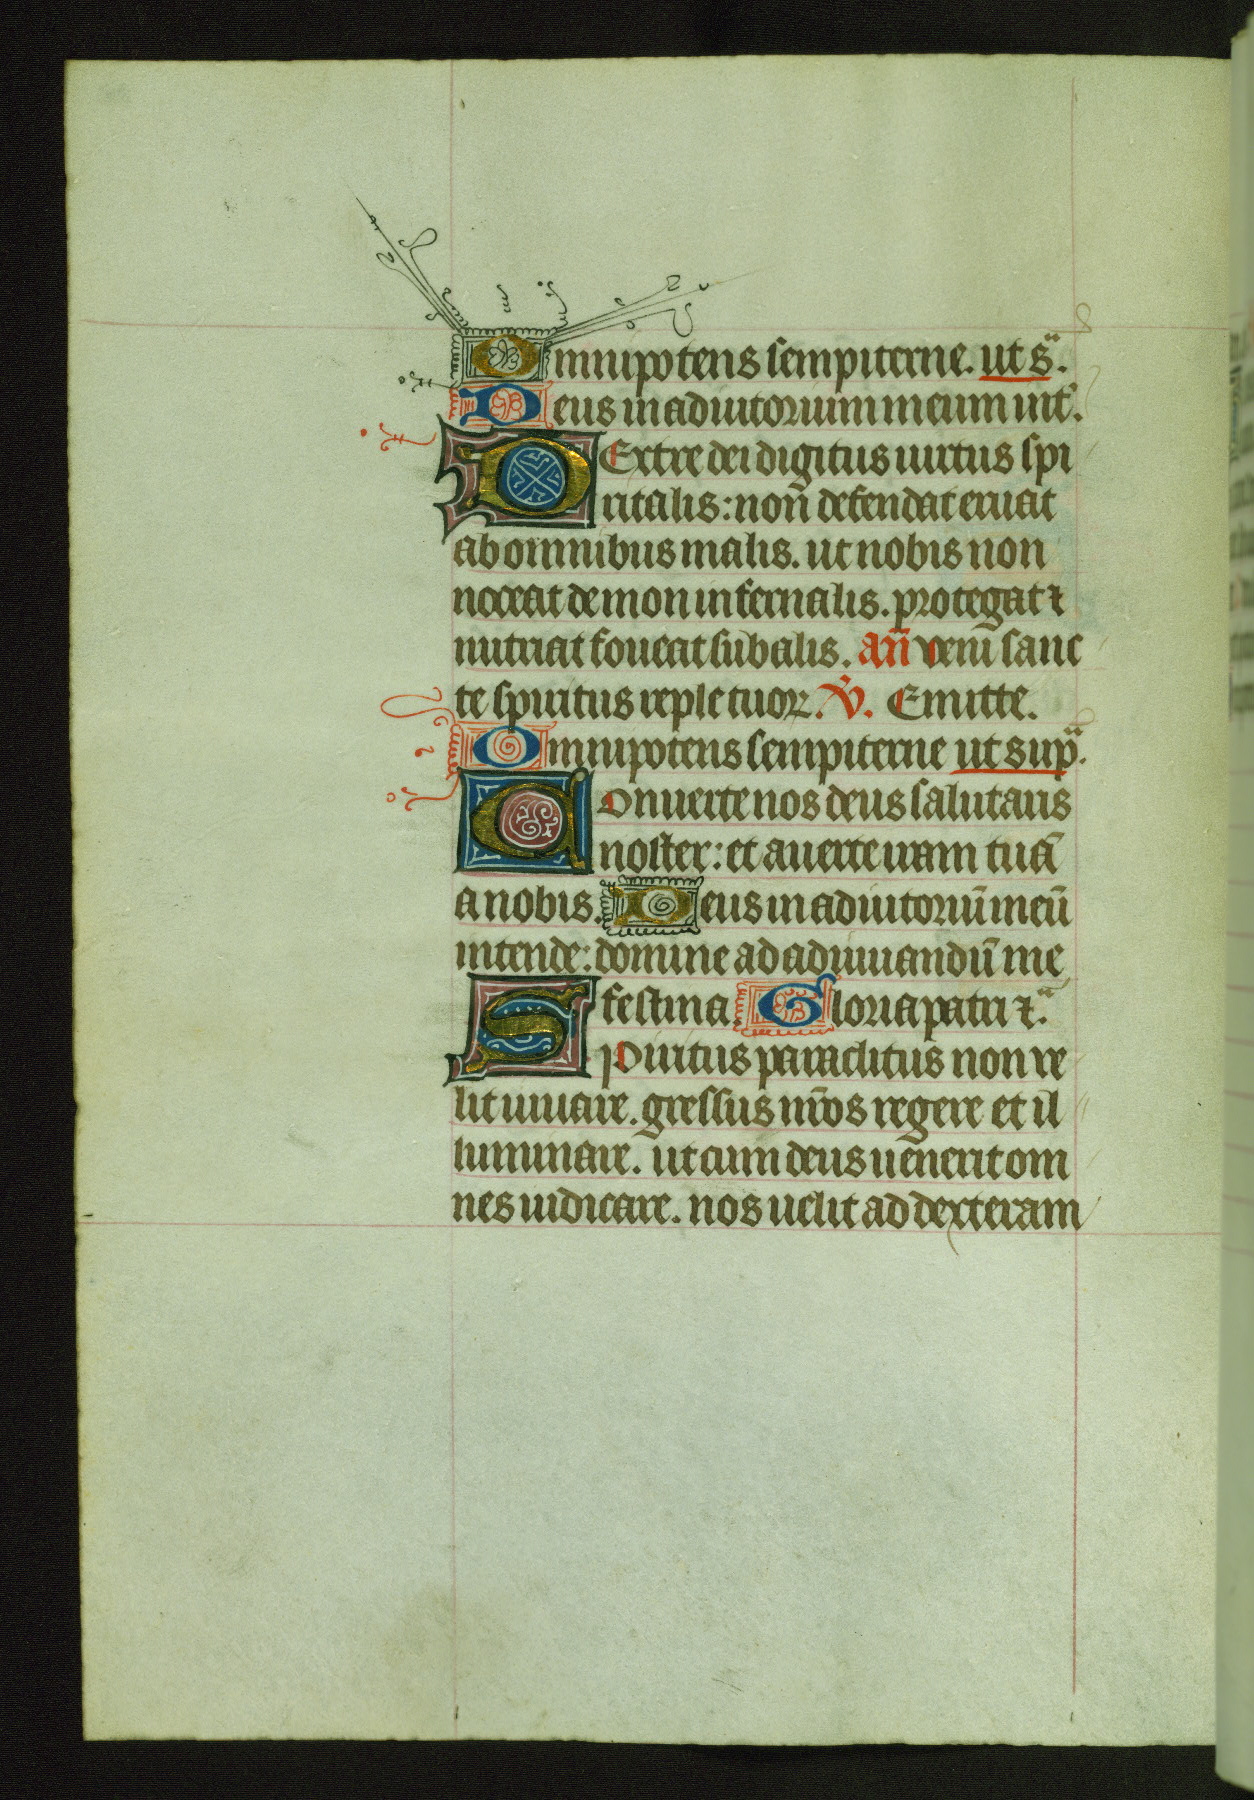 Omnipotens sempiterne. ut sᵃ.
Deus in adiutorium meum int̉.
DExtre dei digitus uirtus spi
ritalis: non̄ defendat eruat
ab omnibus malis. ut nobis non
noceat demon infernalis. protegat ⁊
nutriat foueat sub alis. an̄ veni sanc
te spiritus reple tuoꝝ. V̉. Emitte.
Omnipotens sempiterne ut supᵃ.
COnuerte nos deus salutaris
noster: et auerte iram tuā
a nobis. Deus in adiutoriū meū
intende: domine ad adiuuandū me
festina. Gloria patri ⁊ᵃ.
SPiritus paraclitus non ue
lit iuuare. gressus nr̄os regere et il
luminare. ut cum deus uenerit om
nes iudicare. nos uelit ad dexteram